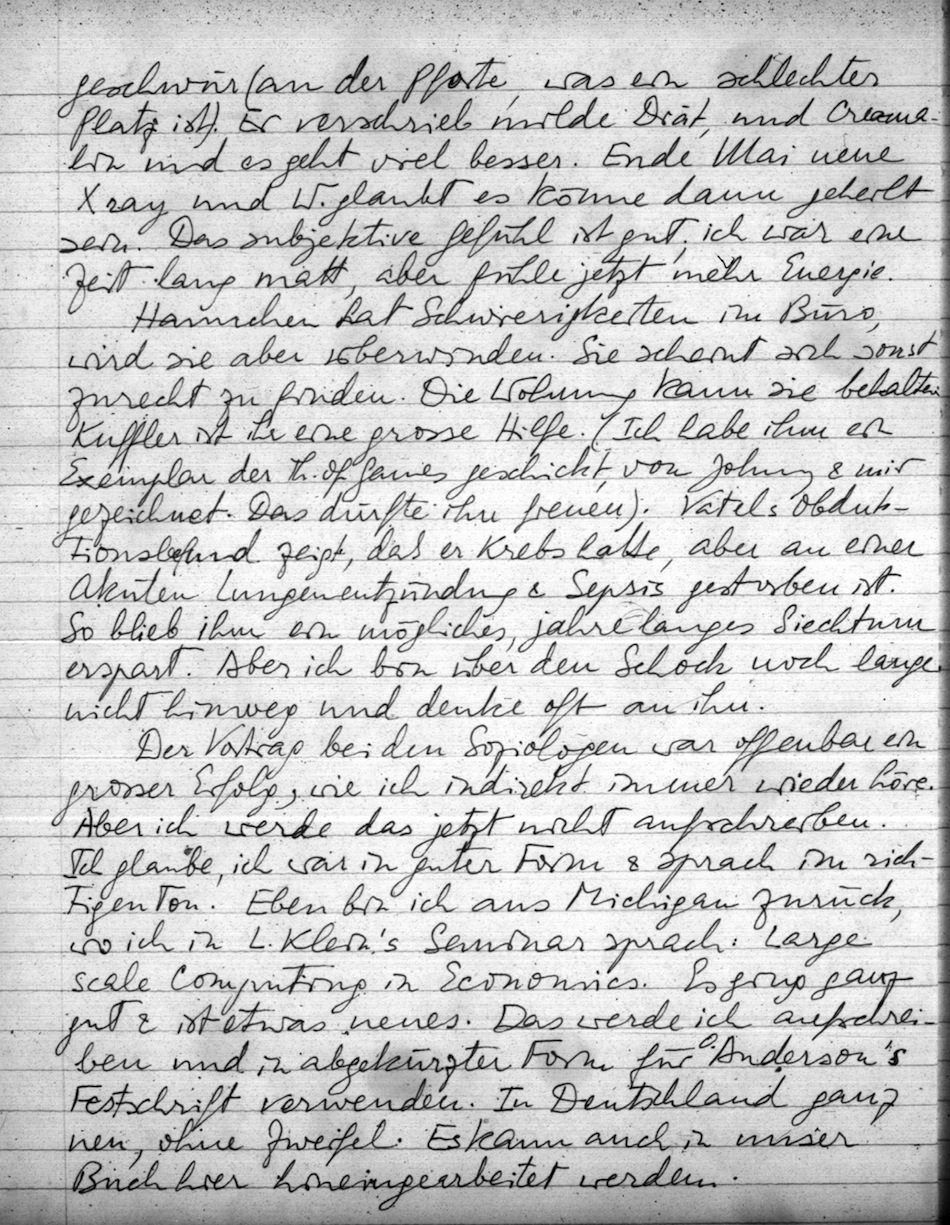 geschwür (an der Pforte, was ein schlechter
Platz ist). Er verschrieb milde Diät, und Creama-
lin und es geht viel besser. Ende Mai neue
X ray und W. glaubt es könne dann geheilt
sein. Das subjektive Gefühl ist gut, ich war eine
Zeit lang matt, aber fühle jetzt mehr Energie.
Hannchen hat Schwierigkeiten im Büro,
wird sie aber überwinden. Sie scheint sich sonst
zurecht zu finden. Die Wohnung kann sie behalten
Kuffler ist ihr eine grosse Hilfe. (Ich habe ihm ein
Exemplar der Th. of Games geschickt, von Johnny & mir
gezeichnet. Das dürfte ihn freuen). Vatels Obduk-
tionsbefund zeigt, dass er Krebs hatte, aber an einer
Akuten Lungenentzündung & Sepsis gestorben ist.
So blieb ihm ein mögliches, jahrelanges Siechtum
erspart. Aber ich bin über den Schock noch lange
nicht hinweg und denke oft an ihn.
Der Vortrag bei den Soziologen war offenbar ein
grosser Erfolg, wie ich indirekt immer wieder höre.
Aber ich werde das jetzt nicht aufschreiben.
Ich glaube, ich war in guter Form & sprach im rich-
tigen Ton. Eben bin ich aus Michigan zurück,
wo ich in L. Klein's Seminar sprach: Large
scale Computing in Economics. Es ging ganz
gut & ist etwas neues. Das werde ich aufschrei-
ben und in abgekürzter Form für O. Anderson's
Festschrift verwenden. In Deutschland ganz
neu, ohne Zweifel. Es kann auch in unser
Buch hier hineingearbeitet werden.